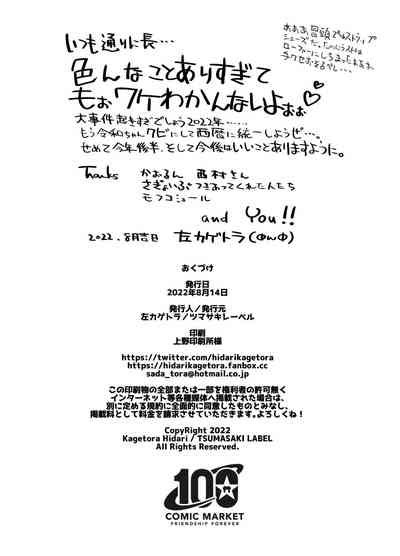 いつも通りに長…
色んなことありすぎて
もぉワケわかんないよぉぉ♡
大事件起きすぎでしょう2022年……
もう令和ちゃんクビにして西暦に統一しようぜ…。
せめて今年後半、そして今後はいいことありますように。
Thanks かおるん 西村さん
さぎょいぷつきあってくれた人たち
モフコミュール
and You!!
2022.8月吉日 左カゲトラ(ΦωΦ)
おくづけ
発行日
2022年8月14日
発行人/発行元
左カゲトラ/ツマサキレーベル
印刷
上野印刷所様
https://twitter.com/hidarikagetora
https://hidarikagetora.fanbox.cc
sada_tora@hotmail.co.jp
この印刷物の全部または一部を権利者の許可無く
インターネット等各種媒体へ掲載された場合は、
別に定める規約に全面的に同意したものとみなし、
掲載料として料金を請求させていただきます。よろしくね!
CopyRight 2022
Kagetora Hidari / TSUMASAKI LABEL
All Rights Reserved.
100
COMIC MARKET
FRIENDSHIP FOREVER